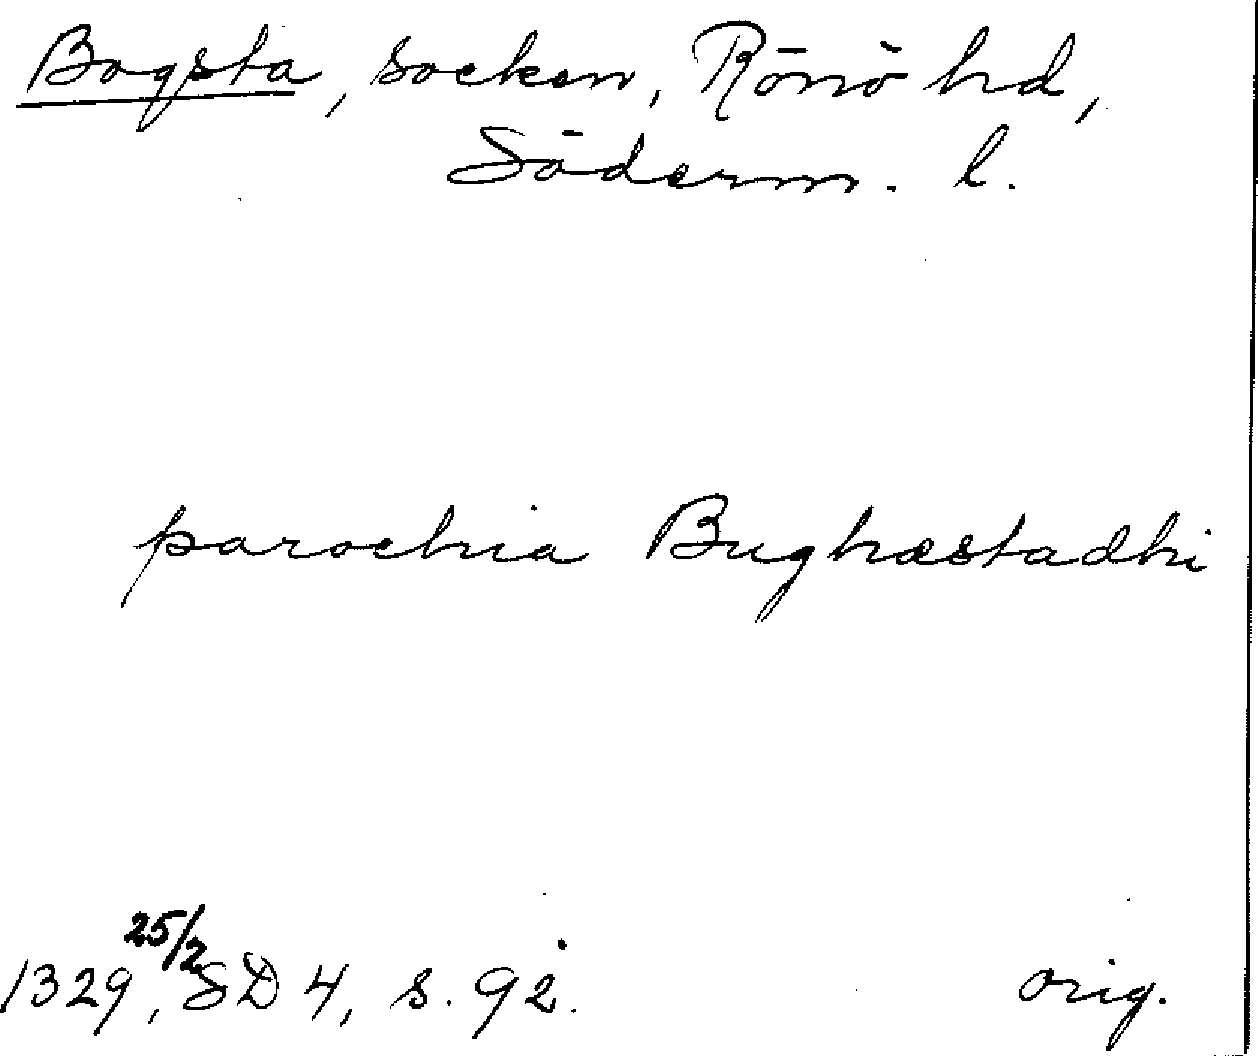 Bogsta, socken, Rönö hd,
Söderm. l.
parochia Bughæstadhi
1329 25/2, SD 4, s. 92. orig.